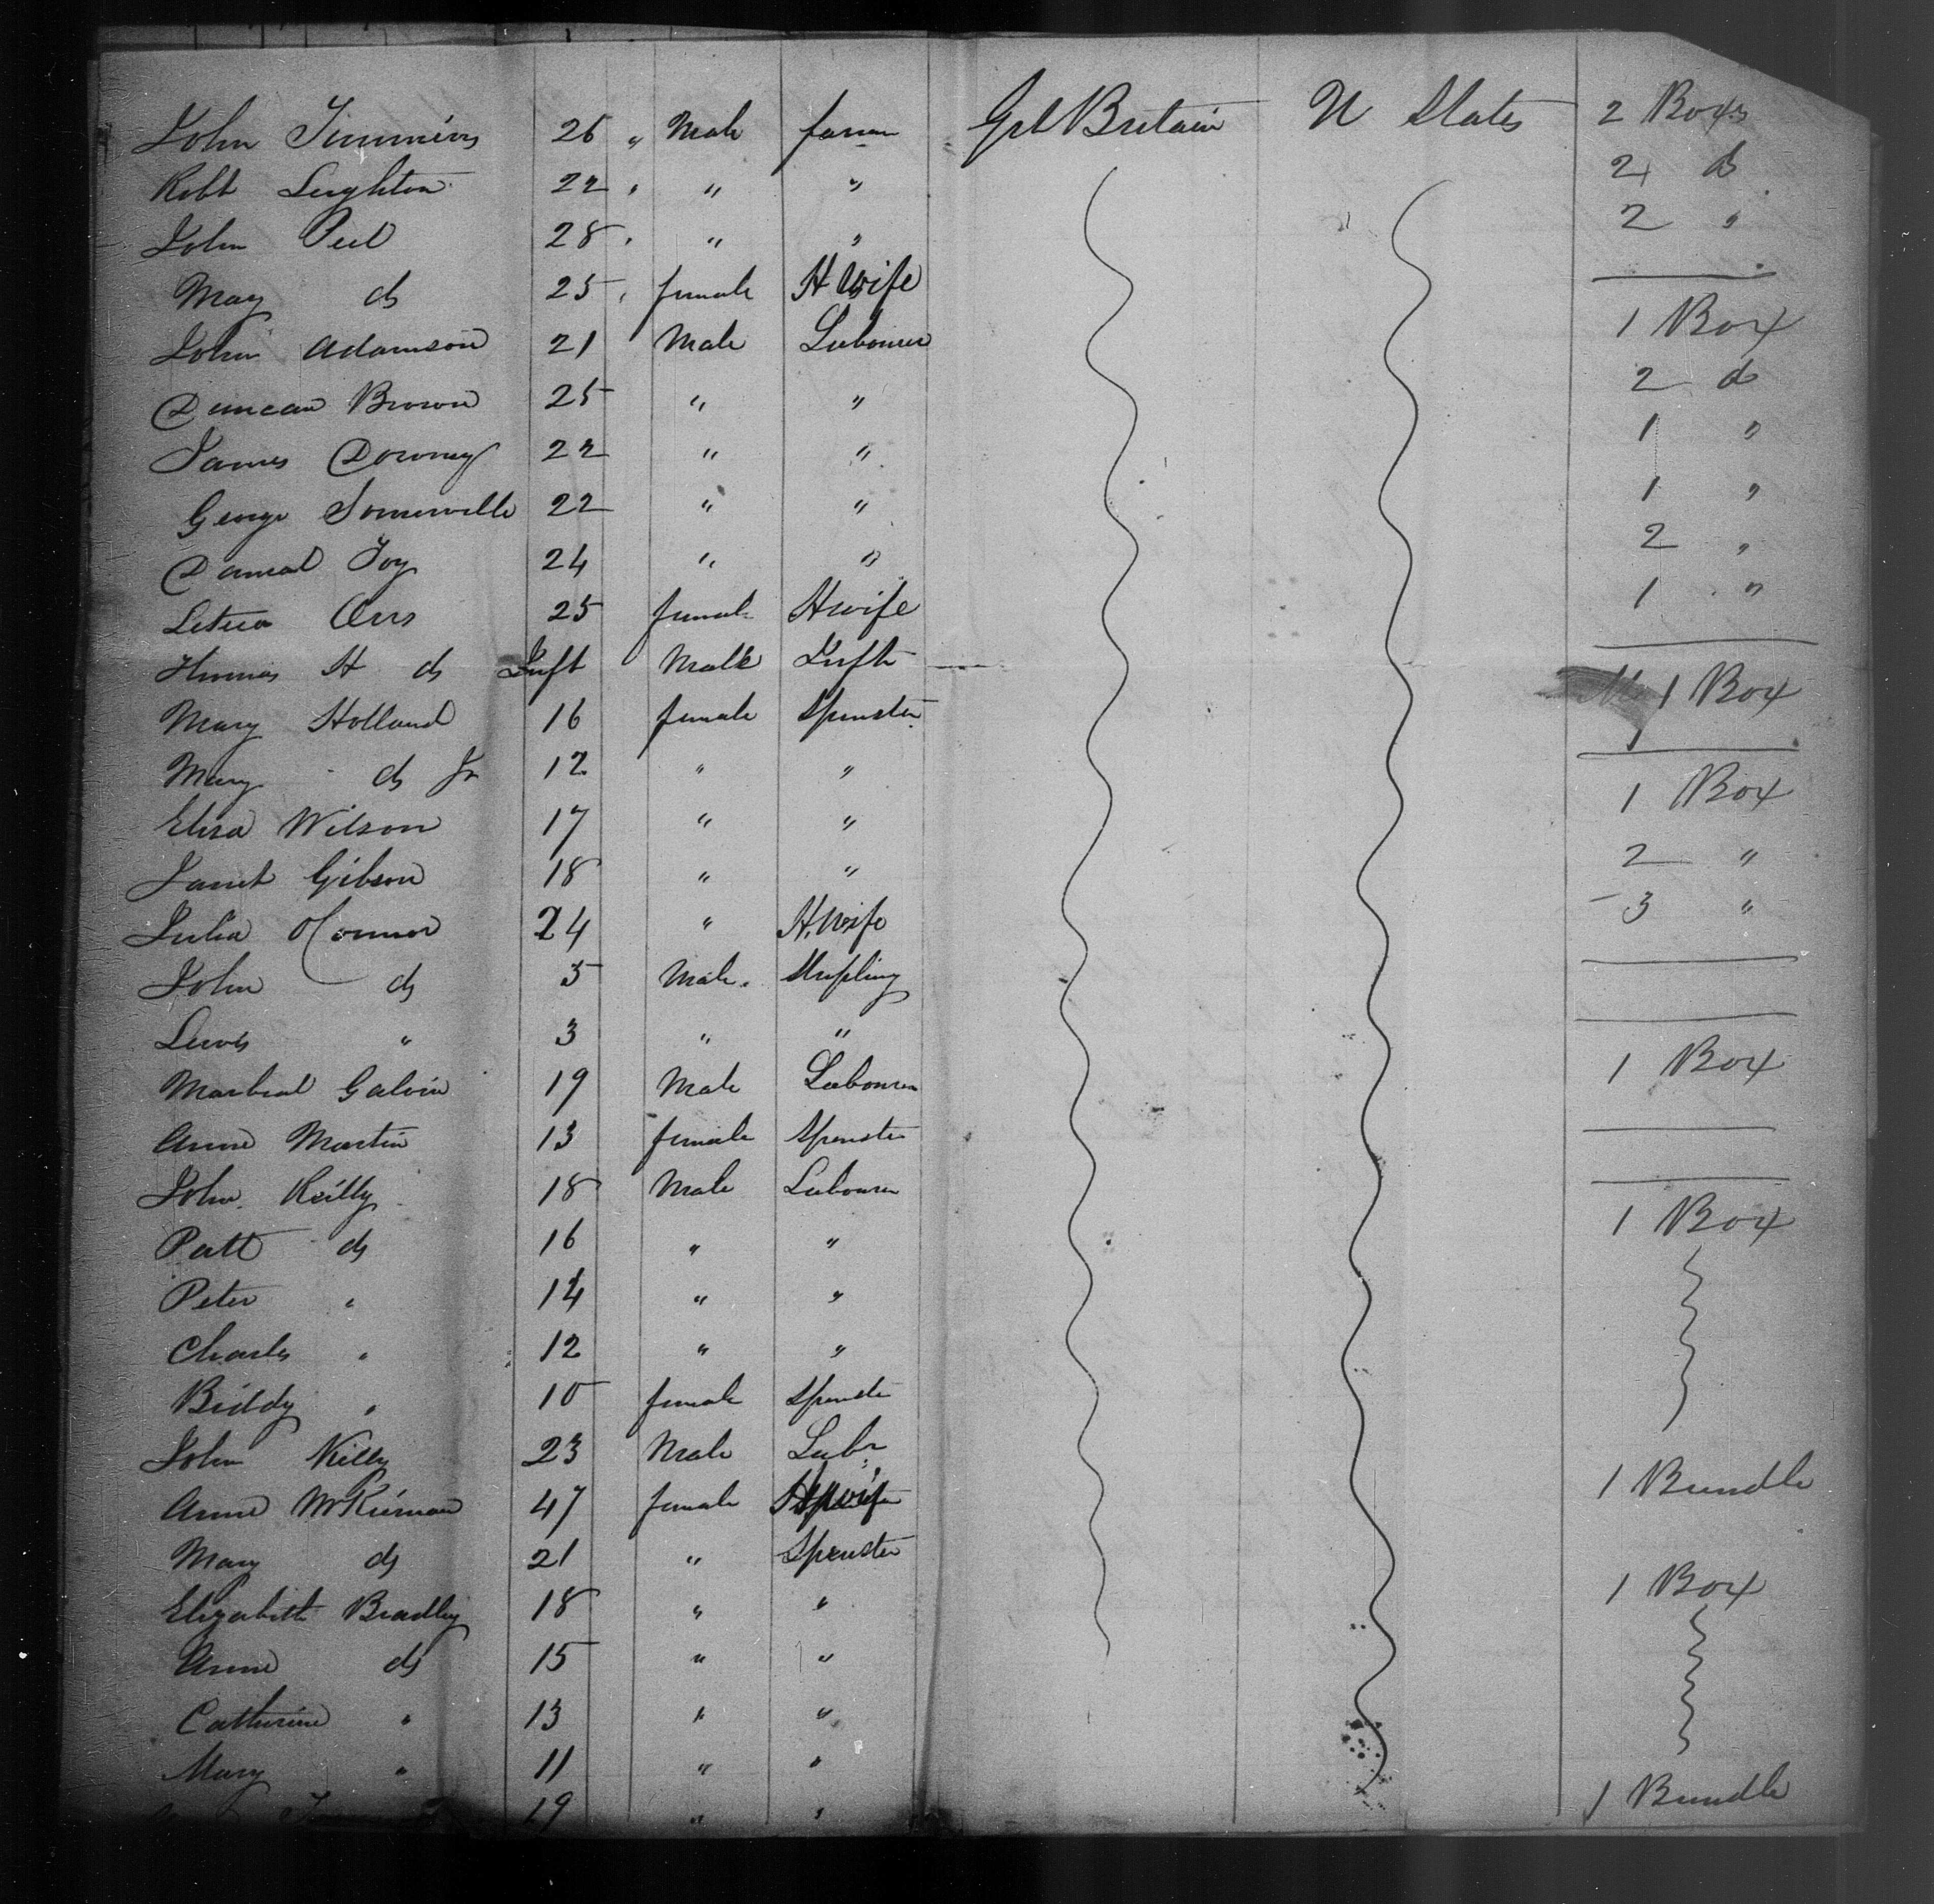 John Timmins 26 " Male farmer Grt Britain U States 2 Boxs
Robt Leighton 22 " " " 2 do
John Peil 28 " " " 2 "
May do 25 " female H Wife
John Adamson 21 Male Labourer 1 Box
Duncan Brown 25 " " 2 do
James Downey 22 " " 1 "
George Somerville 22 " " 1 "
Danial Foy 24 " " 2 "
Leticia Orrs 25 female Hwife 1 "
Thomas H do Inft Male Inft
Mary Holland 16 female Spinster 1 Box
Mary do Jr 12 " "
Eliza Wilson 17 " " 1 Box
Janet Gibson 18 " " 2 "
Julia OConnor 24 " H. Wife 3 "
John do 5 Male Stripling
Lewis " 3 " "
Galvin 19 Male Labourer 1 Box
Anne Martin 13 female Spinster
John Reilly 18 Male Labourer
Patt do 16 " " 1 Box
Peter " 14 " "
Charles " 12 " "
Biddy " 10 female Spinster
John Kelly 23 Male Labr
Anne McKiernan 47 female Hwife 1 Bundle
Mary do 21 " Spinster
Elizabeth Bradley 18 " " 1 Box
Anne do 15 " "
Catherine " 13 " "
Mary " 11 " "
19 " " 1 Bundle